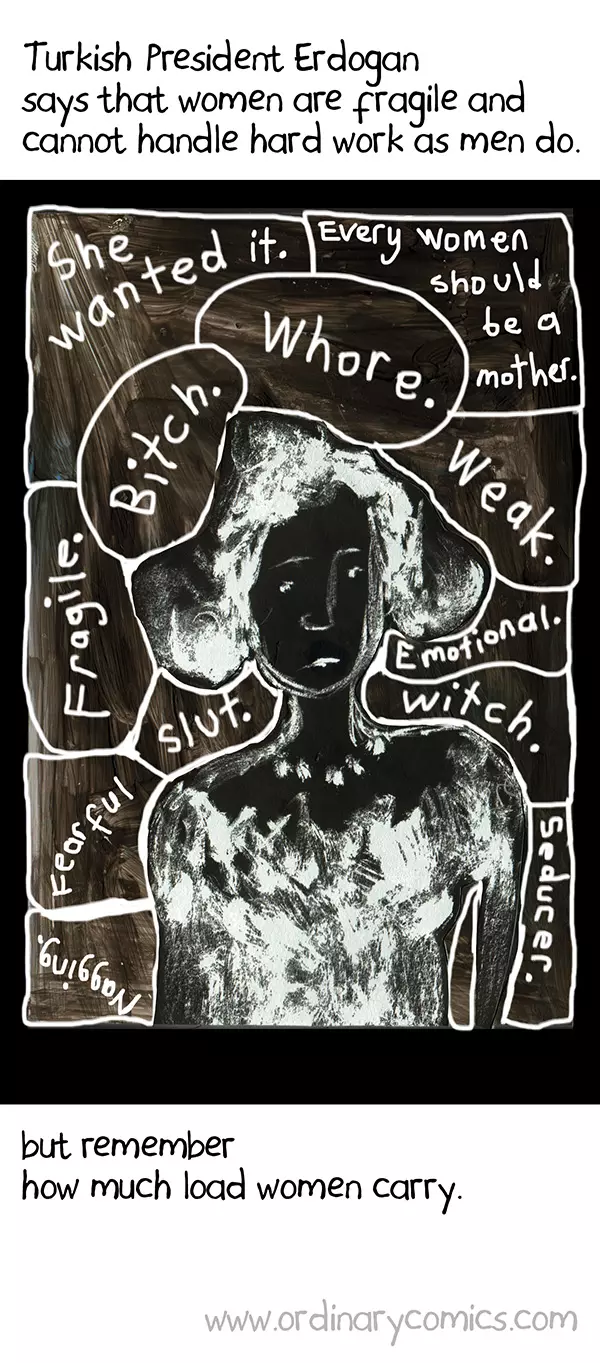 Turkish President Erdogan
says that women are fragile and
cannot handle hard work as men do.
She
wanted it.
Every women
should
be a
mother.
Whore.
Bitch.
Weak.
Fragile.
Emotional.
Slut.
Witch.
Fearful
Seducer.
Nagging.
but remember
how much load women carry.
www.ordinarycomics.com